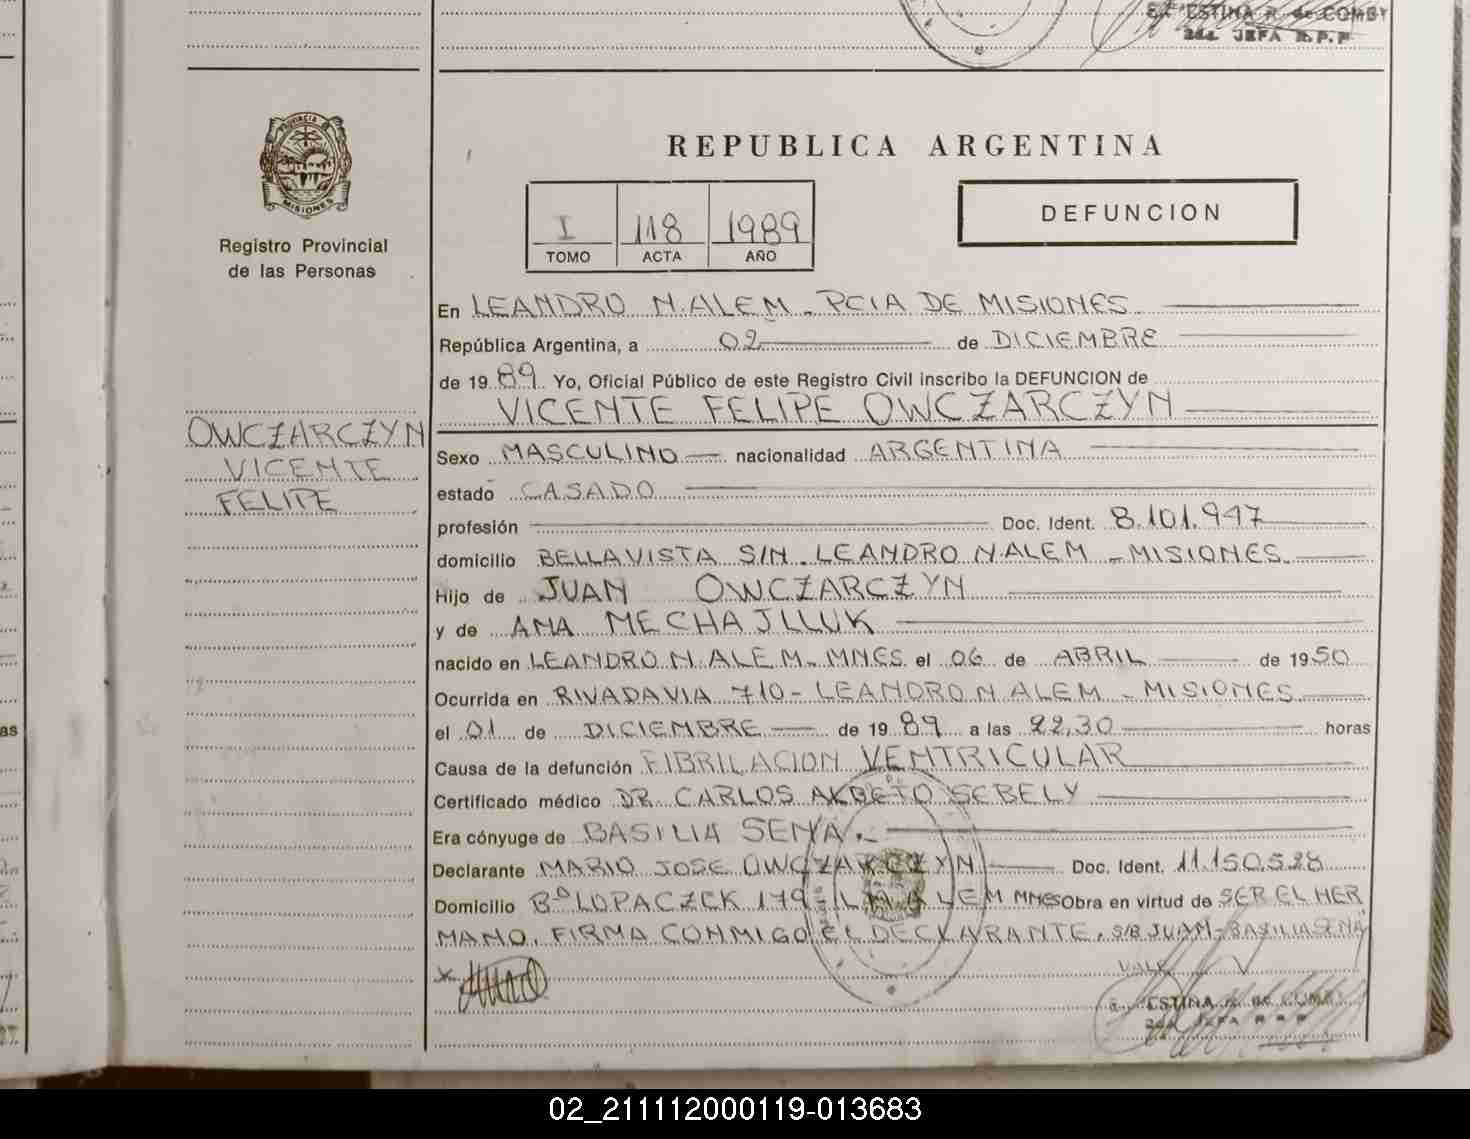 ESTINA R. de COMBY
2da. JEFA R.P.P.
PROVINCIA
MISIONES
Registro Provincial
de las Personas
OWCZARCZYN
VICENTE
FELIPE
REPUBLICA ARGENTINA
I 118 1989
TOMO ACTA AÑO
DEFUNCION
En LEANDRO N. ALEM - PCIA DE MISIONES
República Argentina, a 02 de DICIEMBRE
de 1989 Yo, Oficial Público de este Registro Civil inscribo la DEFUNCION de
VICENTE FELIPE OWCZARCZYN
Sexo MASCULINO nacionalidad ARGENTINA
estado CASADO
profesión Doc. Ident. 8.101.947
domicilio BELLA VISTA S/N. LEANDRO N. ALEM - MISIONES
Hijo de JUAN OWCZARCZYN
y de ANA MECHAJLLUK
nacido en LEANDRO N. ALEM - MNES el 06 de ABRIL de 1950
Ocurrida en RIVADAVIA 710 - LEANDRO N. ALEM - MISIONES
el 01 de DICIEMBRE de 1989 a las 22,30 horas
Causa de la defunción FIBRILACION VENTRICULAR
Certificado médico DR. CARLOS ALBETO SEBELY
Era cónyuge de BASILIA SENA.-
Declarante MARIO JOSE OWCZARCZYN Doc. Ident. 11.150.528
Domicilio Bº LOPACZCK 179 - L.N. ALEM MNES Obra en virtud de SER EL HER
MANO. FIRMA CONMIGO EL DECLARANTE. S/B JUAN - BASILIA SENA
VALE
ESTINA R. de COMBY
2da. JEFA R.P.P.
02_211112000119-013683